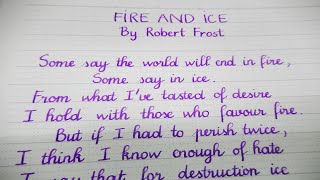 FIRE AND ICE
By Robert Frost
Some say the world will end in fire,
Some say in ice.
From what I've tasted of desire
I hold with those who favour fire.
But if I had to perish twice,
I think I know enough of hate
I say that for destruction ice